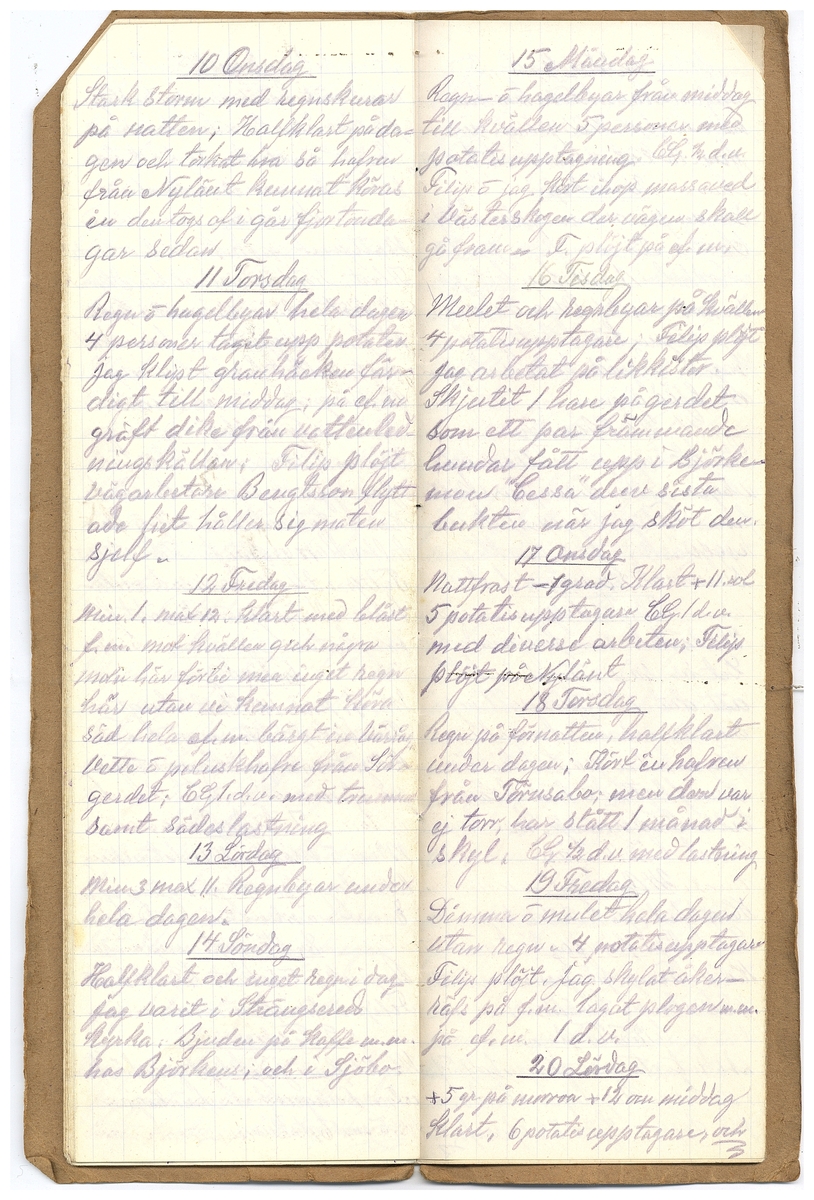 10 Onsdag
Stark storm med regnskurar
på natten; Halfklart på da-
gen och torkat bra så hafren
från Nylänt kunnat köras
in den togs af i går fjortonda-
gar sedan
11 Torsdag
Regn ō hagelbyar hela dagen
4 personer tagit upp potates
jag klipt granhäcken fär-
digt till middag; på ef.m
gräft dike från vattenled-
ningskällan; Filip plöjt
vägarbetare Bengtsson flytt
ade hit håller sig maten
sjelf.
12 Fredag
Min 1. max 12. klart med blåst
f.m. mot kvällen gick några
moln här förbi men inget regn
här utan vi kunnat köra
säd hela ef.m. bärgt in
Vette ō peluskhafre från Sör-
gerdet; CG 1 d.v. med
samt sädeslastning
13 Lördag
Min 3 max 11. Regnbyar under
hela dagen.
14 Söndag
Halfklart och inget regn i dag
jag varit i Strängsereds
kyrka; Bjuden på kaffe m.m.
hos Björkens; och i Sjöbo
15 Måndag
Regn- ō hagelbyar från middag
till kvällen 5 personer med
potatisupptagning. CG ½ d.v.
Filip ō jag kört ihop massaved
i Västerskogen der vägen skall
gå fram F. plöjt på ef.m.
16 Tisdag
Mulet och regnbyar på kvällen
4 potatisupptagare; Filip plöjt
jag arbetat på likkistor.
Skjutit 1 hare på gerdet
som ett par främmande
hundar fått upp i Björke-
mon "Cessa" drev sista
bukten när jag sköt den.
17 Onsdag
Nattfrost -1 grad. Klart +11. sol
5 potatisupptagare CG 1 d.v.
med diverse arbeten; Filip
plöjt på Nylänt
18 Torsdag
Regn på förnatten, halfklart
under dagen; Kört in hafren
från Törnsabo; men den var
ej torr, har stått 1 månad i
skyl. CG ½ d.v. med lastning
19 Fredag
Dimma ō mulet hela dagen
utan regn. 4 potatisupptagare
Filip plöjt. jag skylat åker-
räfs på f.m. lagat plogen m.m.
på ef.m. 1 d.v.
20 Lördag
+5 gr på morron +12 om middag
Klart, 6 potatisupptagare, och